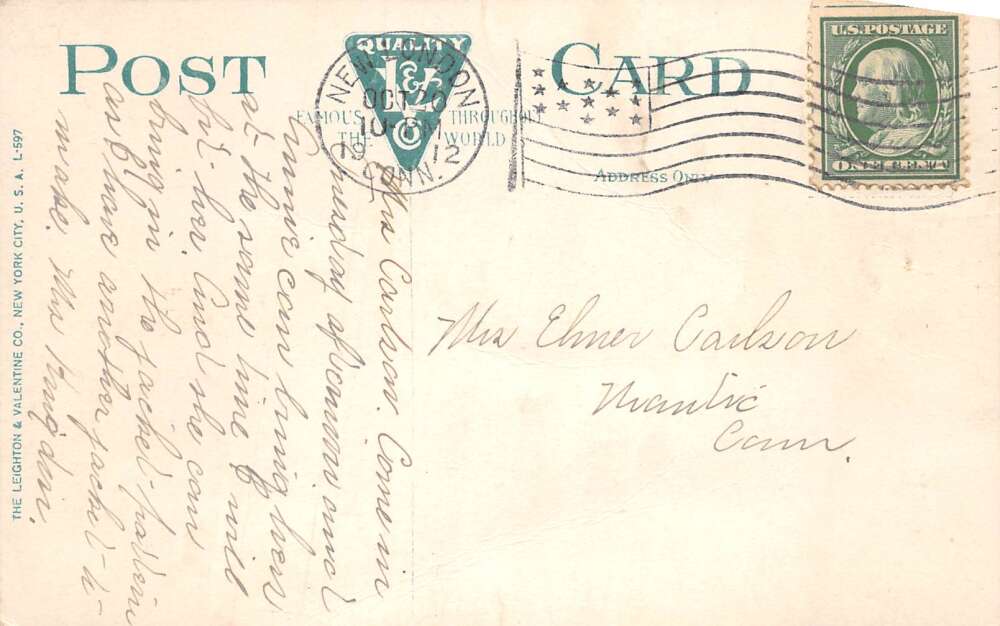 POST CARD
QUALITY
L&V
Co
FAMOUS THROUGHOUT
THE WORLD
NEW LONDON
OCT 20
10-PM
19 12
CONN.
U.S. POSTAGE
ONE CENT
ADDRESS ONLY
THE LEIGHTON & VALENTINE CO., NEW YORK CITY, U. S. A. L-597
Mrs Carlson. Come in
afternoon and
Annie can bring hers
at the same time I will
her. And she can
bring in the jacket-pattern
as I have another jacket-to-
make. Mrs Kingdon.
Mrs Elmer Carlson
Niantic
Conn.